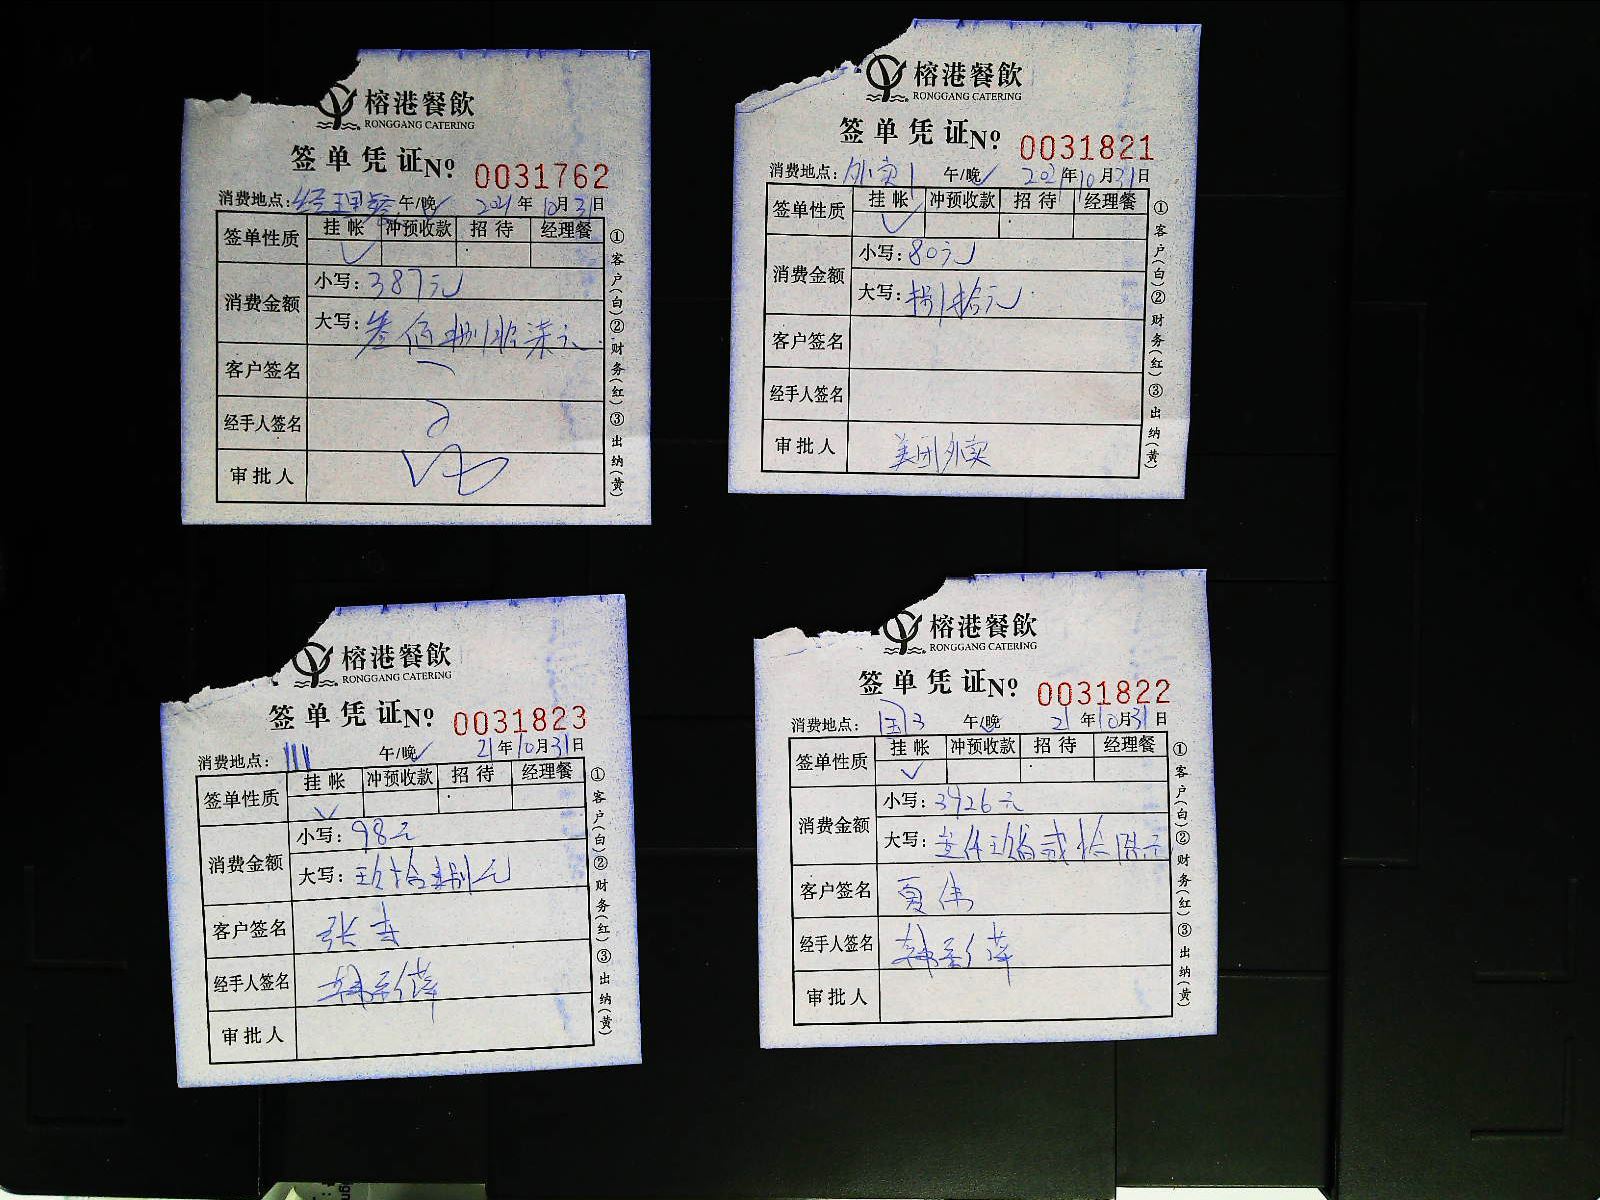 榕港餐飲
RONGGANG CATERING
签单凭证№ 0031762
消费地点:经理餐 午/晚 2021年10月31日
签单性质 挂帐 冲预收款 招待 经理餐
消费金额 小写:387元
大写:叁佰捌拾柒元
客户签名
经手人签名
审批人
①客户(白)②财务(红)③出纳(黄)
榕港餐飲
RONGGANG CATERING
签单凭证№ 0031821
消费地点:外卖1 午/晚 2021年10月31日
签单性质 挂帐 冲预收款 招待 经理餐
消费金额 小写:80元
大写:捌拾元
客户签名
经手人签名
审批人 美团外卖
①客户(白)②财务(红)③出纳(黄)
榕港餐飲
RONGGANG CATERING
签单凭证№ 0031823
消费地点: 午/晚 21年10月31日
签单性质 挂帐 冲预收款 招待 经理餐
消费金额 小写:98元
大写:玖拾捌元
客户签名 张
经手人签名 韩
审批人
①客户(白)②财务(红)③出纳(黄)
榕港餐飲
RONGGANG CATERING
签单凭证№ 0031822
消费地点:国3 午/晚 21年10月31日
签单性质 挂帐 冲预收款 招待 经理餐
消费金额 小写:3926元
大写:叁仟玖佰贰拾陆元
客户签名 夏伟
经手人签名 韩
审批人
①客户(白)②财务(红)③出纳(黄)